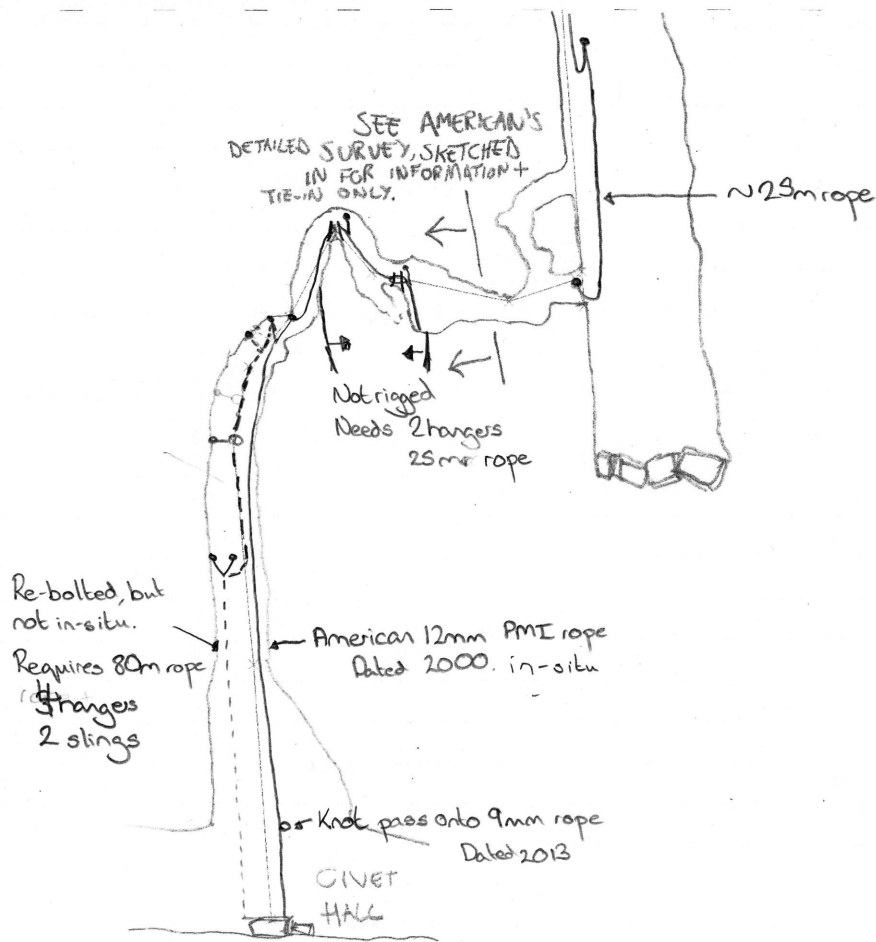 SEE AMERICAN'S
DETAILED SURVEY, SKETCHED
IN FOR INFORMATION +
TIE-IN ONLY.
~25m rope
Not rigged
Needs 2 hangers
25m rope
Re-bolted, but
not in-situ.
Requires 80m rope
hangers
2 slings
American 12mm PMI rope
Dated 2000. in-situ
Knot pass onto 9mm rope
Dated 2013
CIVET
HALL